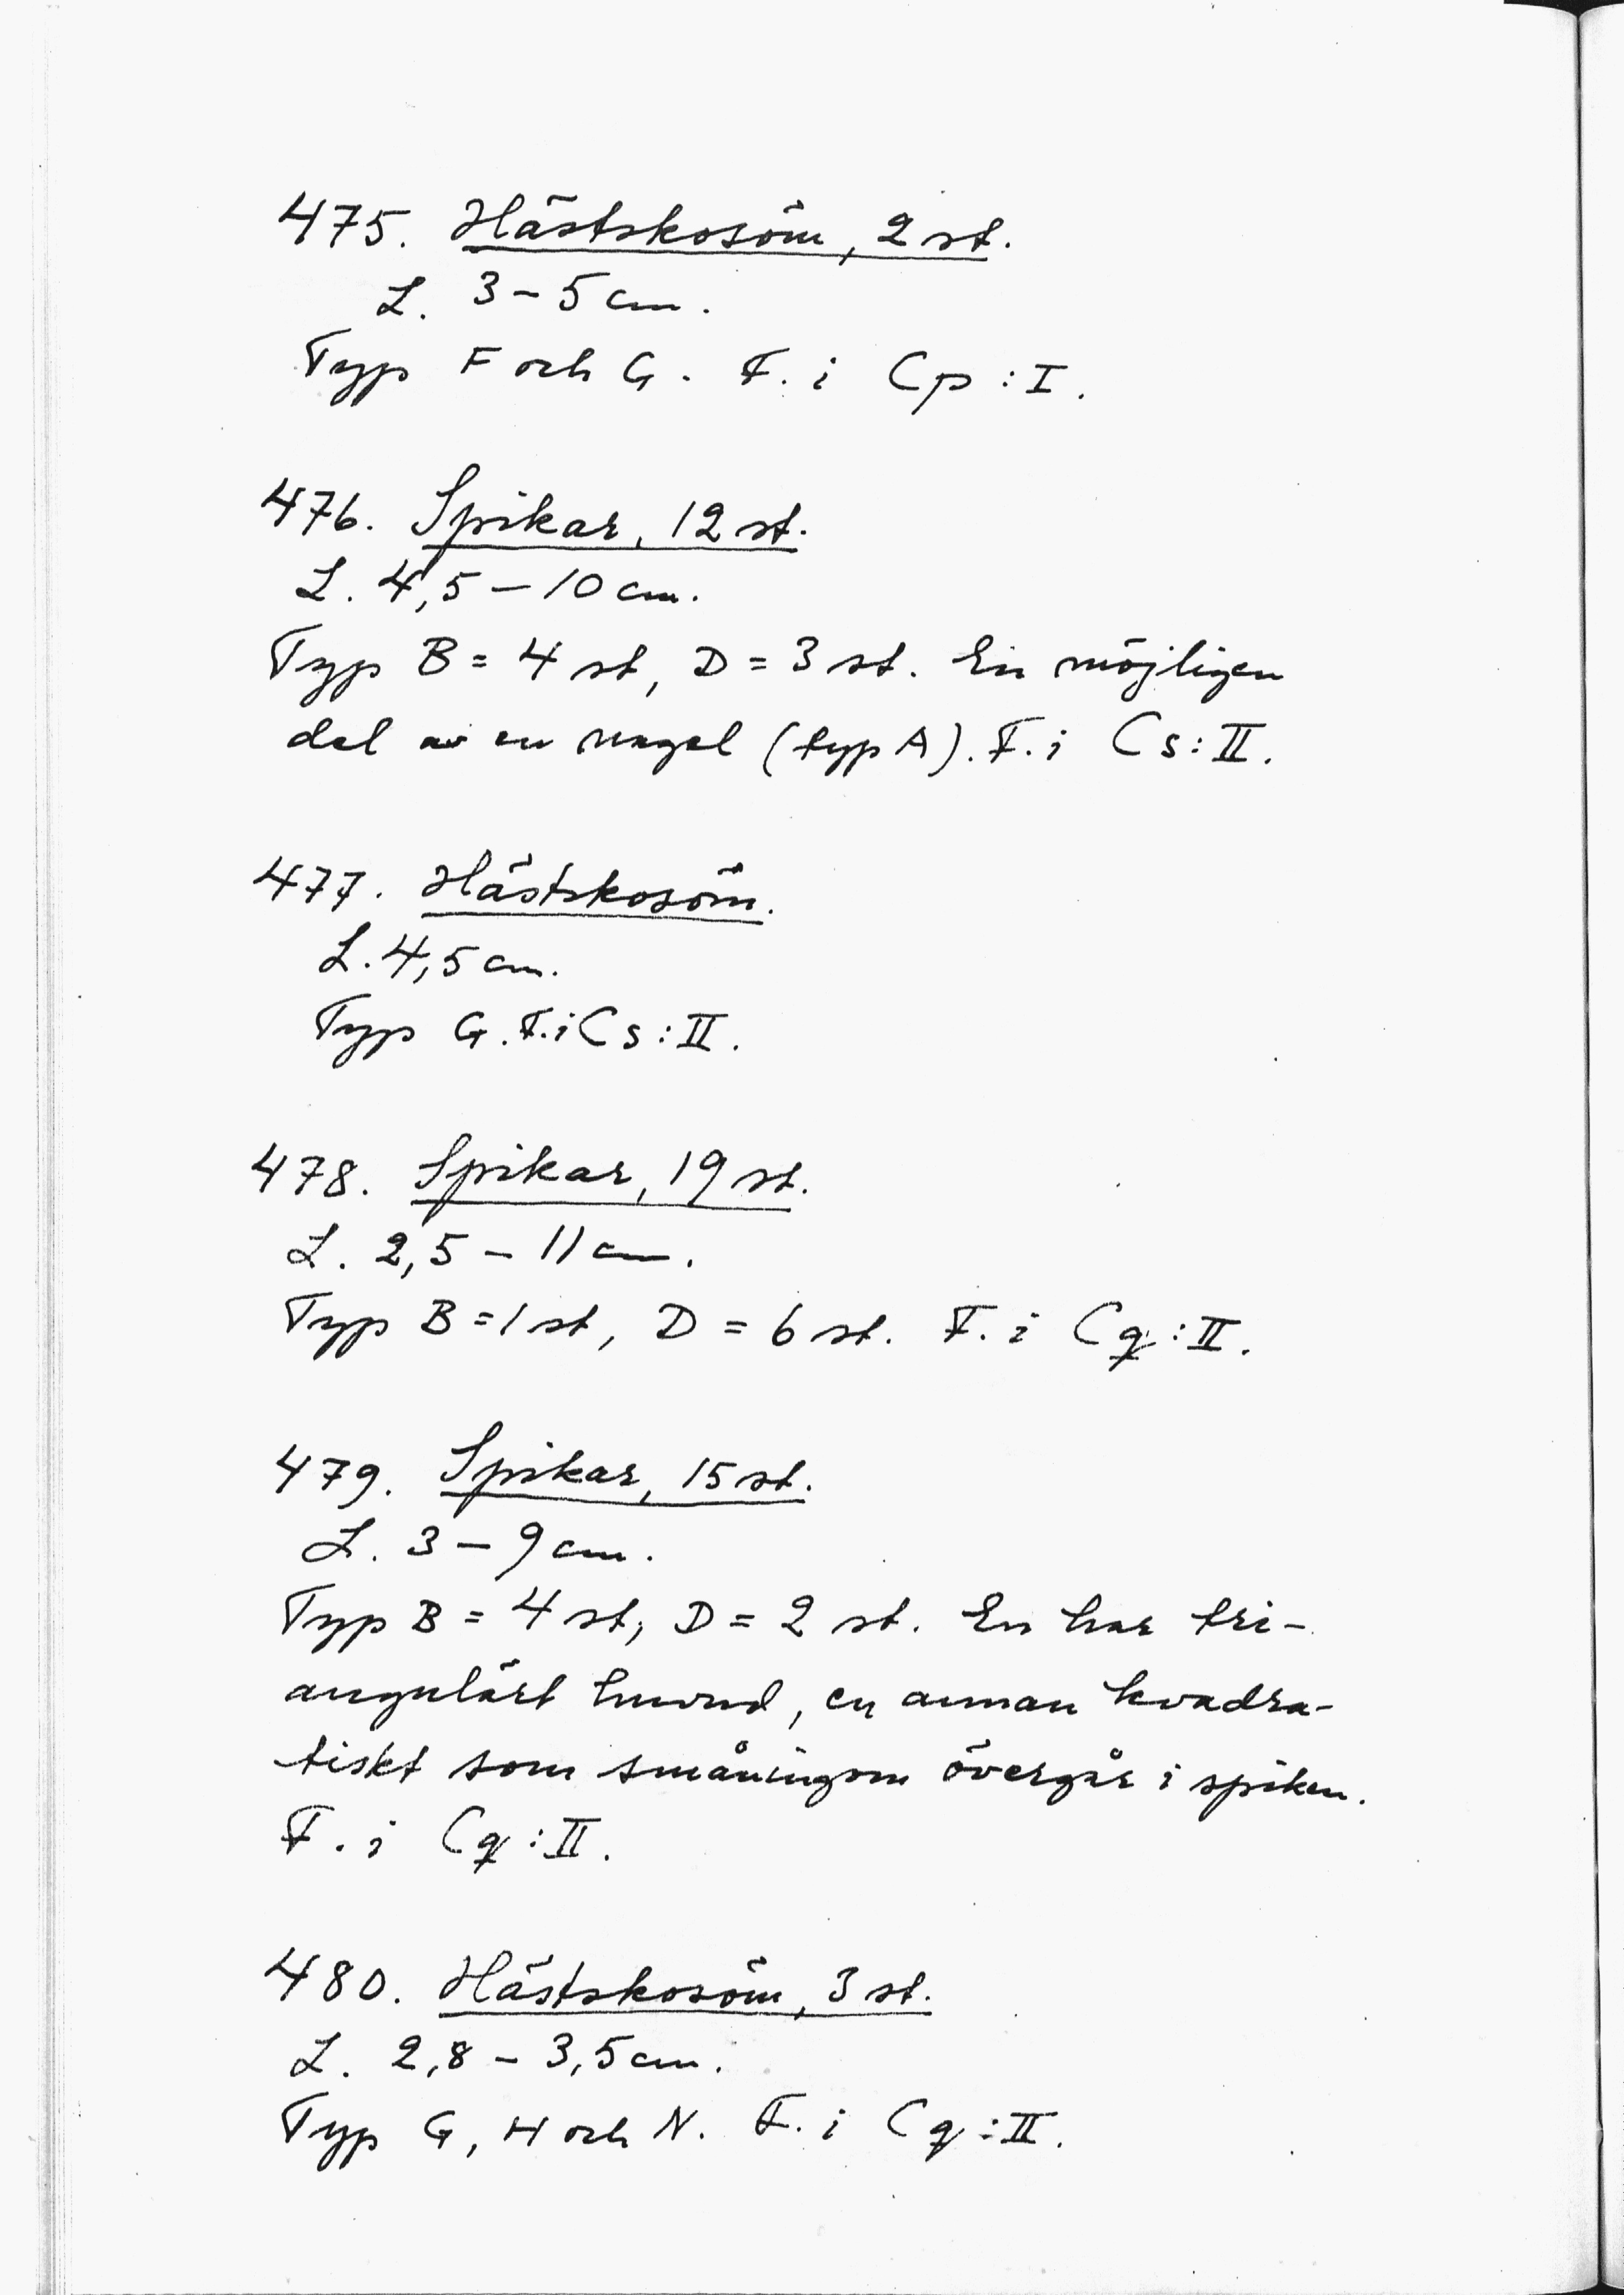 475. Hästskosöm, 2 st.
L. 3-5 cm.
Typ F och G. F. i Cp : I.
476. Spikar, 12 st.
L. 4,5 - 10 cm.
Typ B = 4 st, D = 3 st. En möjligen
del av en nagel (typ A). F. i Cs : II.
477. Hästskosöm.
L. 4,5 cm.
Typ G. F. i Cs : II.
478. Spikar, 19 st.
L. 2,5 - 11 cm.
Typ B = 1 st, D = 6 st. F. i Cq : II.
479. Spikar, 15 st.
L. 3 - 9 cm.
Typ B = 4 st, D = 2 st. En har tri-
angulärt huvud, en annan kvadra-
tiskt som småningom övergår i spiken.
F. i Cq : II.
480. Hästskosöm, 3 st.
L. 2,8 - 3,5 cm.
Typ G, H och N. F. i Cq : II.